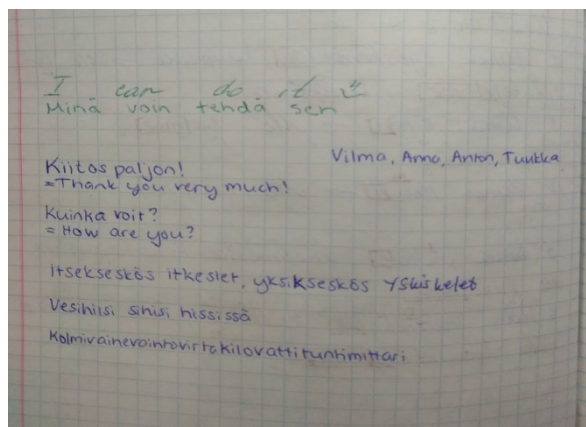 I can do it
Minä voin tehdä sen
Vilma, Anno, Anton, Tuukka
Kiitos paljon!
=Thank you very much!
Kuinka voit?
= How are you?
Itsekseskös itkeslet, yksikseskös yskiskelet
Vesihiisi sihisi hississä
Kolmivaihevaihtovirtakilovattituntimittari